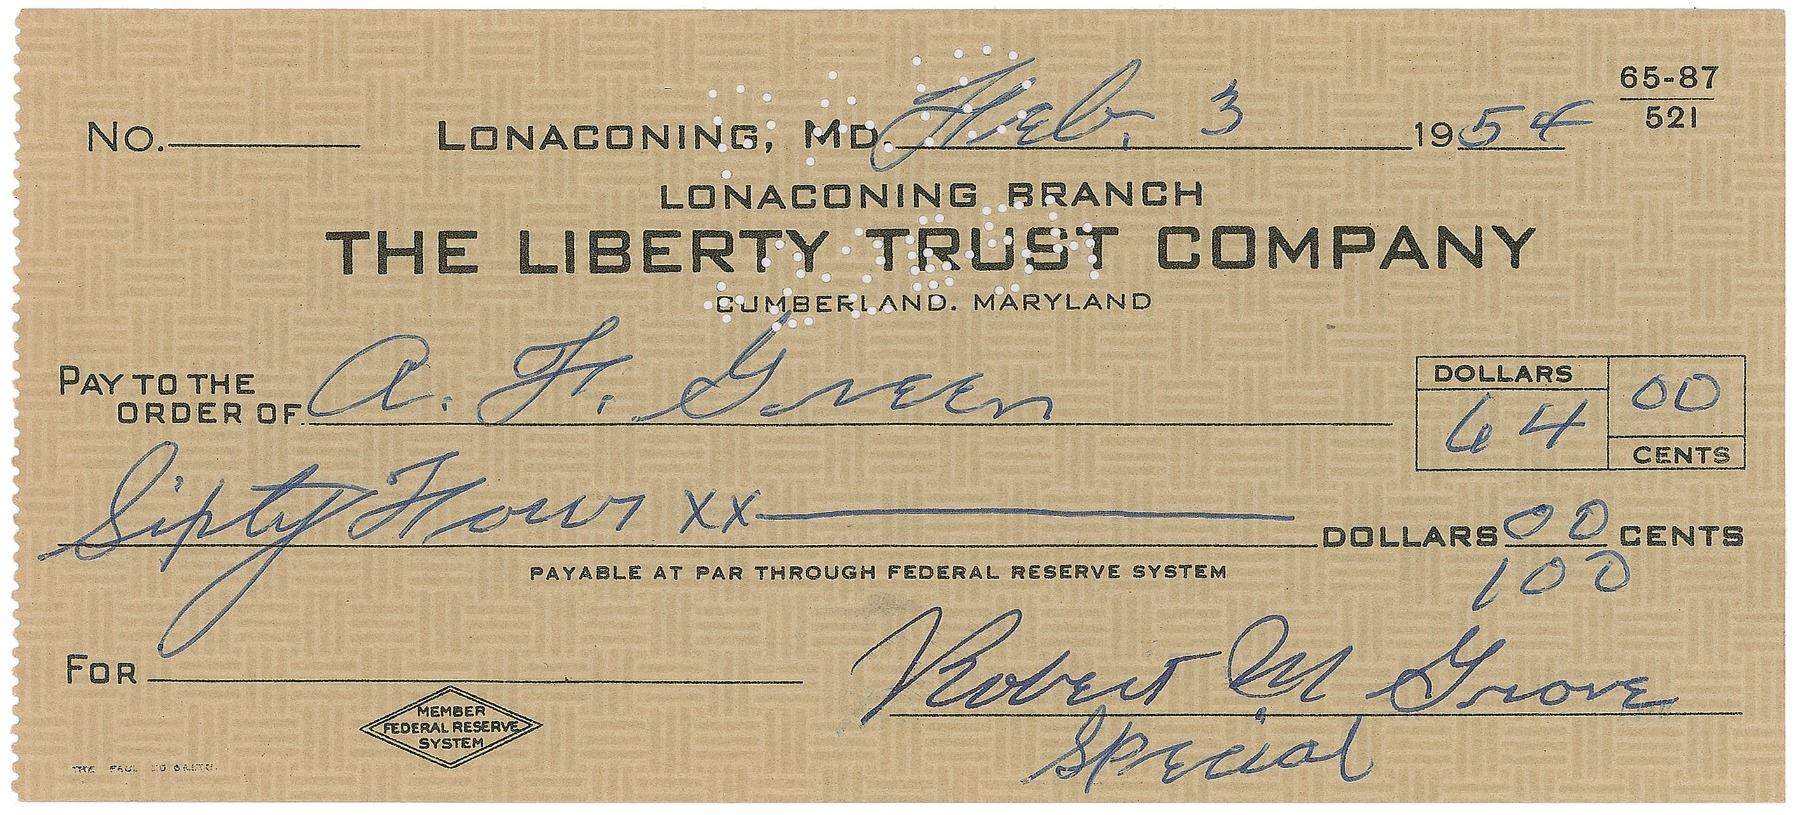 65-87
521
No. LONACONING, MD. Feb. 3 1954
LONACONING BRANCH
THE LIBERTY TRUST COMPANY
CUMBERLAND. MARYLAND
PAY TO THE ORDER OF A. F. Green
DOLLARS 64 00 CENTS
Sixty Four xx DOLLARS 00 CENTS
100
PAYABLE AT PAR THROUGH FEDERAL RESERVE SYSTEM
FOR Robert M Grove
Special
MEMBER
FEDERAL RESERVE
SYSTEM